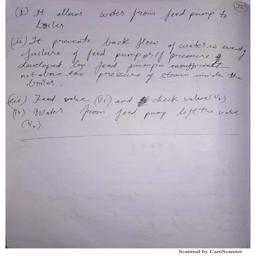 (i) It allows water from feed pump to
boiler
(ii) It prevents back flow of water in case
failure of feed pump or if pressure
developed by feed pump is insufficient
not above the pressure of steam inside the
boiler.
(iii) Feed valve (V1) and check valve (V2)
(iv) Water from feed pump lift the valve
(V2)
Scanned by CamScanner